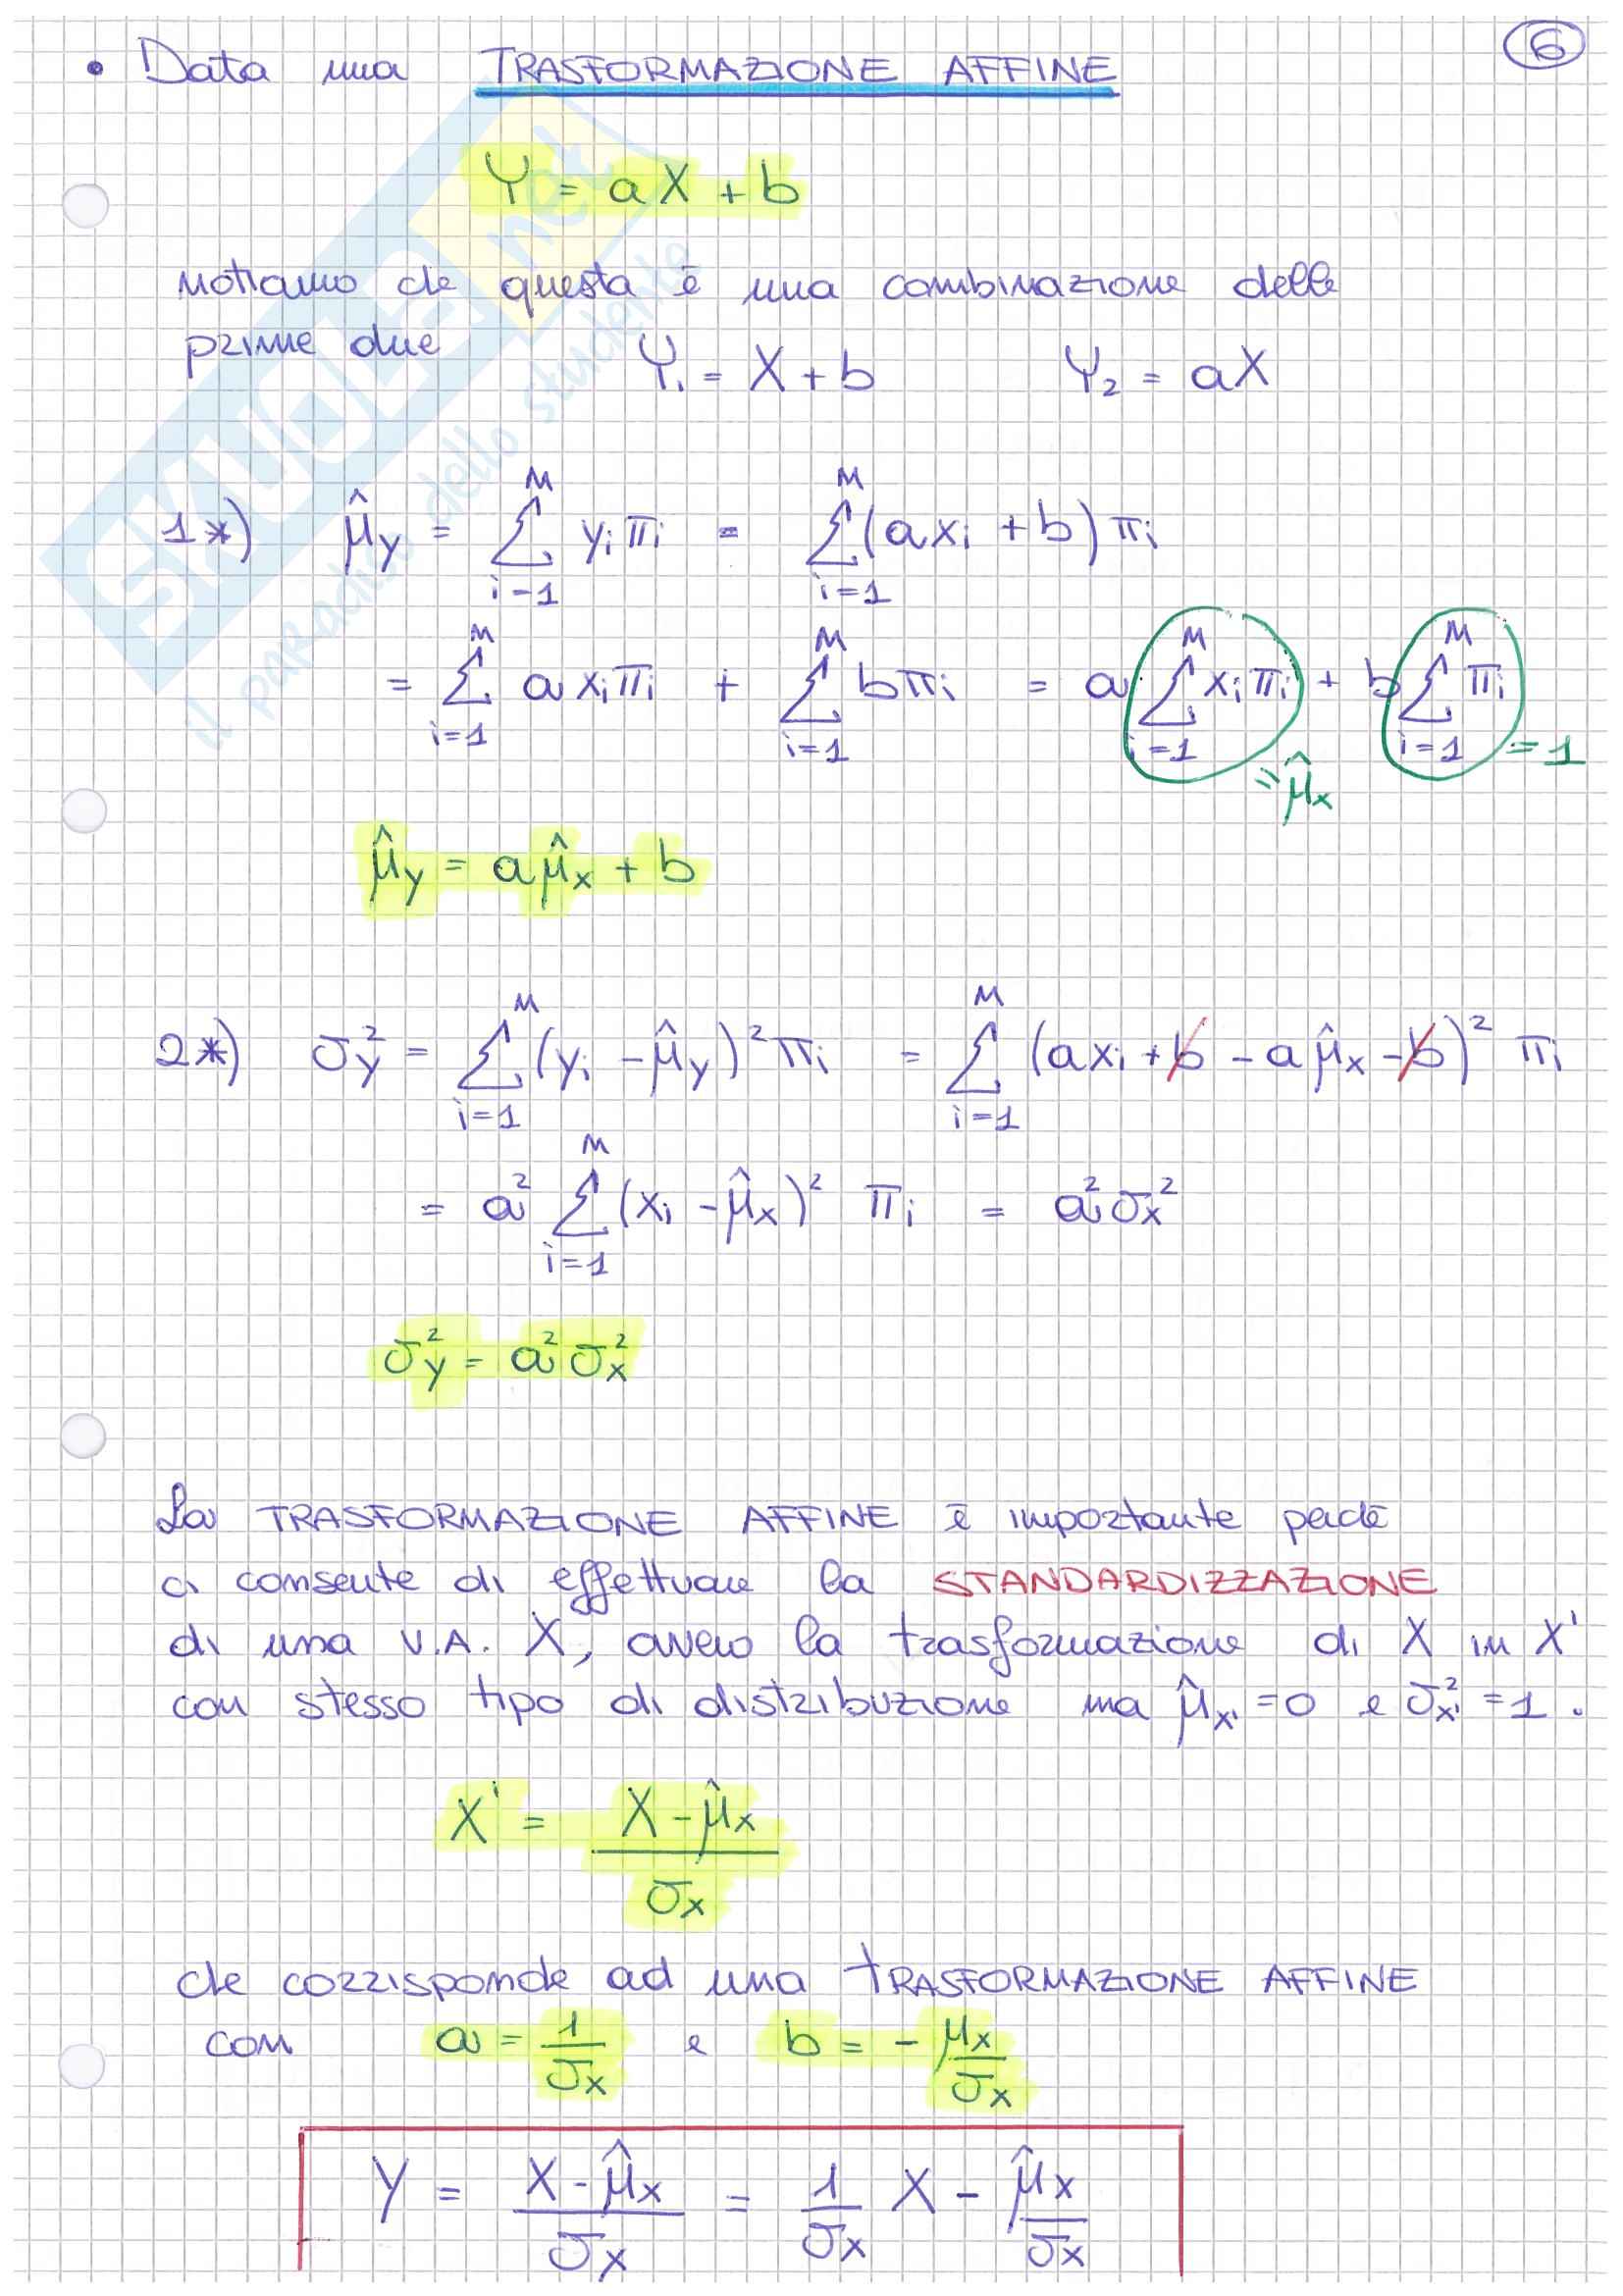 6
• Data una TRASFORMAZIONE AFFINE
Y = aX + b
notiamo che questa è una combinazione delle
prime due Y₁ = X + b Y₂ = aX
1*) μ̂_y = Σ_{i=1}^{M} y_i π_i = Σ_{i=1}^{M} (a x_i + b) π_i
= Σ_{i=1}^{M} a x_i π_i + Σ_{i=1}^{M} b π_i = a Σ_{i=1}^{M} x_i π_i + b Σ_{i=1}^{M} π_i = 1
= μ̂_x
μ̂_y = a μ̂_x + b
2*) σ_y² = Σ_{i=1}^{M} (y_i - μ̂_y)² π_i = Σ_{i=1}^{M} (a x_i + b - a μ̂_x - b)² π_i
= a² Σ_{i=1}^{M} (x_i - μ̂_x)² π_i = a² σ_x²
σ_y² = a² σ_x²
La TRASFORMAZIONE AFFINE è importante perché
ci consente di effettuare la STANDARDIZZAZIONE
di una V.A. X, ovvero la trasformazione di X in X'
con stesso tipo di distribuzione ma μ̂_x' = 0 e σ²_x' = 1.
X' = (X - μ̂_x) / σ_x
che corrisponde ad una TRASFORMAZIONE AFFINE
con a = 1/σ_x e b = - μ_x/σ_x
Y = (X - μ̂_x)/σ_x = 1/σ_x X - μ̂_x/σ_x
SKUOLA.net
il paradiso dello studente